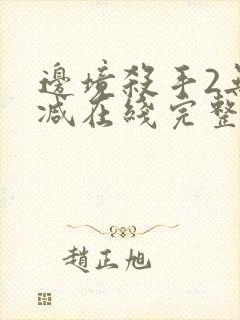 邊境殺手2無
减在綫完整
趙正旭